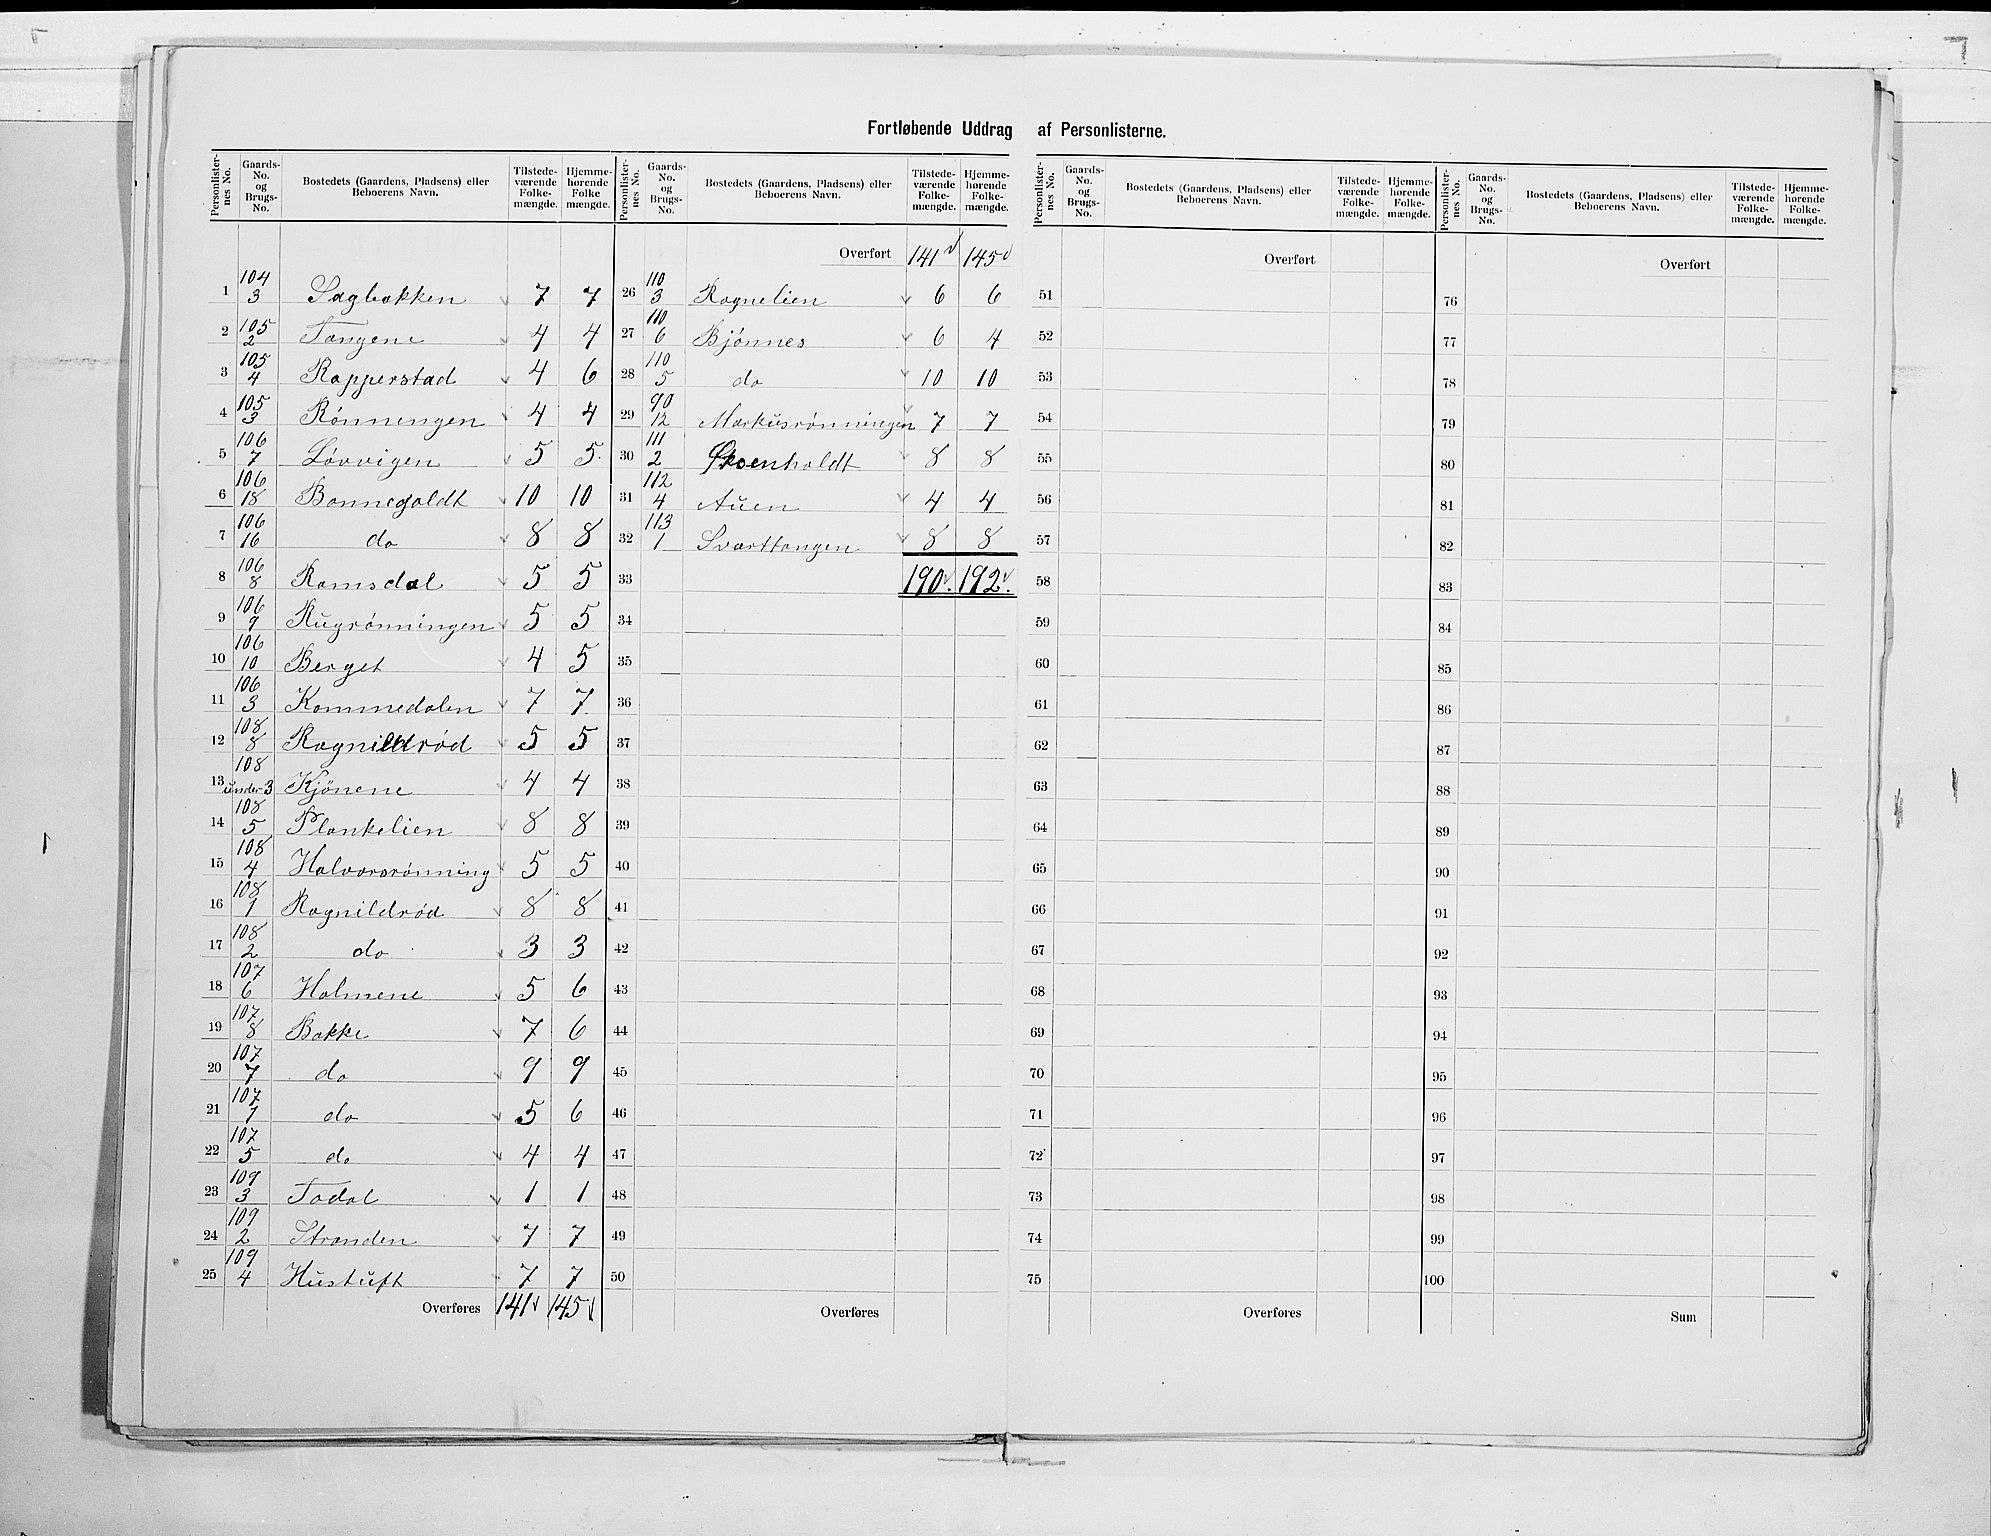 Fortløbende Uddrag af Personlisterne.
Personlister-nes No. | Gaards-No. og Brugs-No. | Bostedets (Gaardens, Pladsens) eller Beboerens Navn. | Tilstede-værende Folke-mængde. | Hjemme-hørende Folke mængde.
1 104/3 Sagbakken 7 7
2 105/2 Tangene 4 4
3 105/4 Rapperstad 4 6
4 105/3 Rønningen 4 4
5 106/7 Løvvigen 5 5
6 106/18 Bonnegoldt 10 10
7 106/16 do 8 8
8 106/8 Ramsdal 5 5
9 106/9 Rugrønningen 5 5
10 106/10 Berget 4 5
11 106/3 Kammedalen 7 7
12 108/8 Ragnildrød 5 5
13 108/under 3 Kjønene 4 4
14 108/5 Plankelien 8 8
15 108/4 Halvorsrønning 5 5
16 108/1 Ragnildrød 8 8
17 108/2 do 3 3
18 107/6 Holmene 5 6
19 107/8 Bakke 7 6
20 107/7 do 9 9
21 107/1 do 5 6
22 107/5 do 4 4
23 109/3 Todal 1 1
24 109/2 Stranden 7 7
25 109/4 Hustuft 7 7
Overføres 141 145
Personlister-nes No. | Gaards-No. og Brugs-No. | Bostedets (Gaardens, Pladsens) eller Beboerens Navn. | Tilstede-værende Folke-mængde. | Hjemme-hørende Folke-mængde.
Overført 141 145
26 110/3 Ragnelien 6 6
27 110/6 Bjønnes 6 4
28 110/5 do 10 10
29 90/12 Markusrønningen 7 7
30 111/2 Skoenholdt 8 8
31 112/4 Auen 4 4
32 113/1 Svarttangen 8 8
33 190. 192.
34
35
36
37
38
39
40
41
42
43
44
45
46
47
48
49
50
Overføres
Personlister-nes No. | Gaards-No. og Brugs-No. | Bostedets (Gaardens, Pladsens) eller Beboerens Navn. | Tilstede-værende Folke-mængde. | Hjemme-hørende Folke-mængde.
Overført
51
52
53
54
55
56
57
58
59
60
61
62
63
64
65
66
67
68
69
70
71
72
73
74
75
Overføres
Personlister-nes No. | Gaards-No. og Brugs-No. | Bostedets (Gaardens, Pladsens) eller Beboerens Navn. | Tilstede-værende Folke-mængde. | Hjemme-hørende Folke-mængde.
Overført
76
77
78
79
80
81
82
83
84
85
86
87
88
89
90
91
92
93
94
95
96
97
98
99
100
Sum